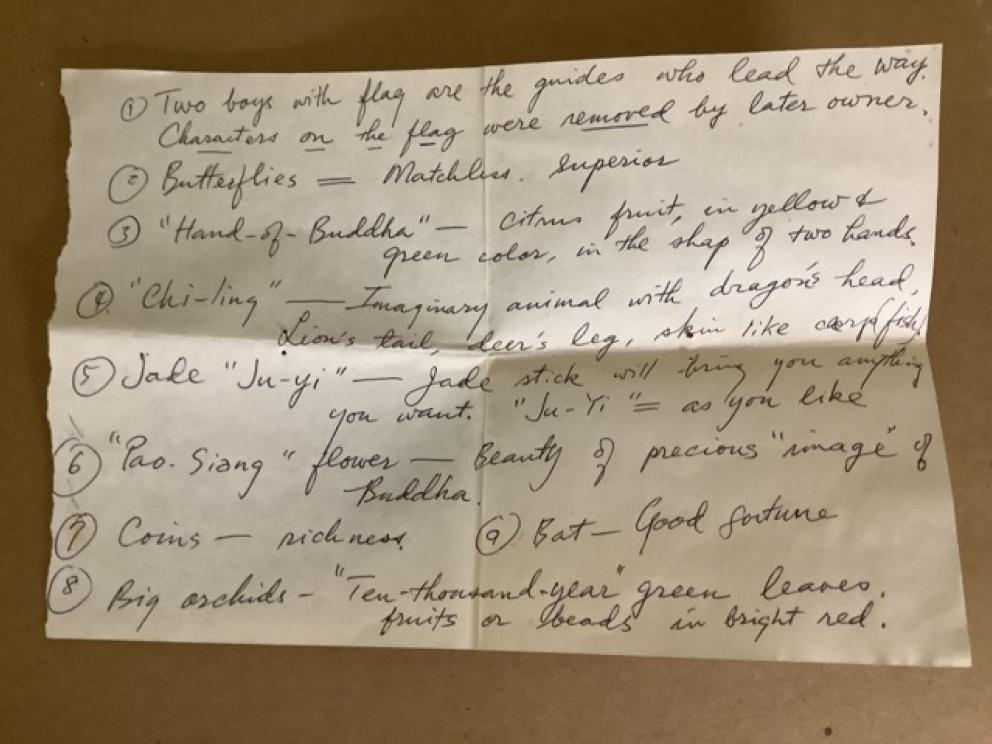 ① Two boys with flag are the guides who lead the way.
Characters on the flag were removed by later owner.
② Butterflies = Matchless. Superior
③ "Hand-of-Buddha" — citrus fruit, in yellow &
green color, in the shap of two hands.
④ "Chi-ling" — Imaginary animal with dragon's head,
Lion's tail, deer's leg, skin like carp fish.
⑤ Jade "Ju-yi" — Jade stick will bring you anything
you want. "Ju-Yi" = as you like
⑥ "Pao-Siang" flower — Beauty of precious "image" of
Buddha.
⑦ Coins — richness. ⑨ Bat — Good fortune
⑧ Big orchids - "Ten-thousand-year" green leaves.
fruits or beads in bright red.